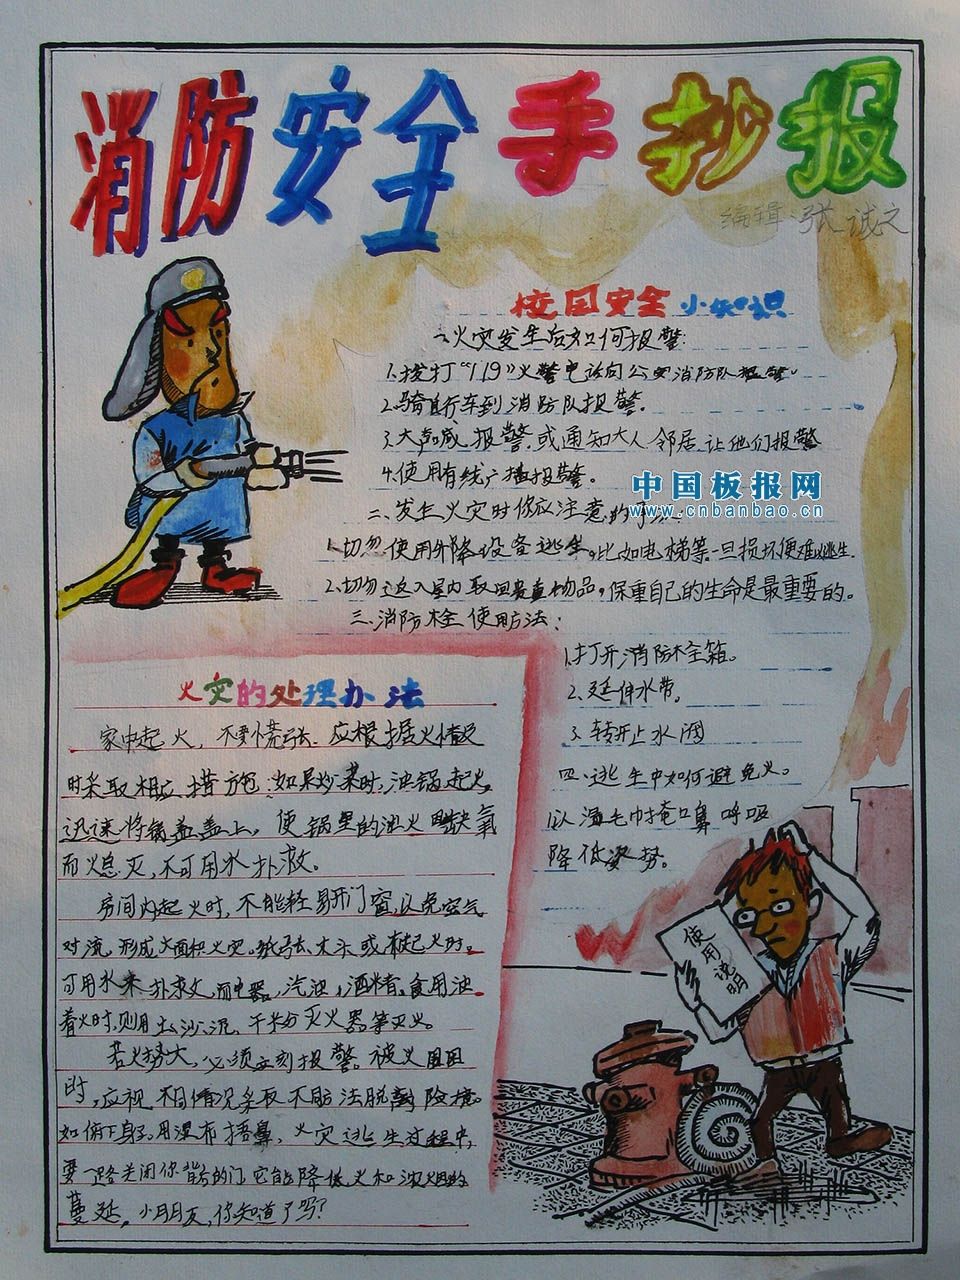 消防安全手抄报
编辑:张诚文
校园安全小知识
一.火灾发生后如何报警:
1.拨打“119”火警电话向公安消防队报警。
2.骑自行车到消防队报警。
3.大声喊报警.或通知大人邻居.让他们报警
4.使用有线广播报警。
中国板报网
www.cnbanbao.cn
二、发生火灾时你应注意的事项:
1.切忽使用升降设备逃生。比如电梯等.一旦损坏便难以逃生.
2.切勿进入室内取回贵重物品,保重自己的生命是最重要的。
三.消防栓使用方法:
1.打开消防栓箱。
2.延伸水带。
3.转开止水阀
四.逃生中如何避免火。
以湿毛巾掩口鼻呼吸
降低姿势。
火灾的处理办法
家中起火,不要慌张.应根据火情及
时采取相应措施:如果炒菜时,油锅起火,
迅速将锅盖盖上,使锅里的油火缺氧
而熄灭,不可用水扑救。
房间内起火时,不能轻易开门窗,以免空气
对流,形成大面积火灾。纸张、木头或起火时。
可用水来扑救,而电器,汽油,酒精.食用油
着火时,则用土、沙、泥、干粉灭火器等灭火。
若火势大,必须立刻报警。被火围困
时,应视不同情况采取不同方法脱离险境。
如俯下身子。用湿布捂鼻,火灾逃生过程中,
要一路关闭你背后的门,它能降低火和浓烟的
蔓延。小朋友,你知道了吗?
使用说明